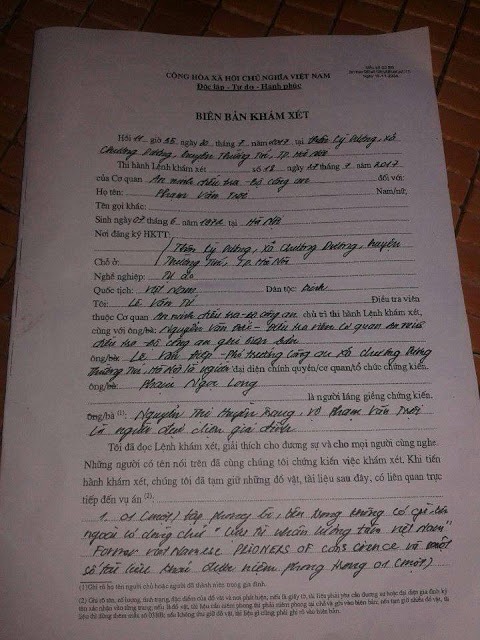 CỘNG HÒA XÃ HỘI CHỦ NGHĨA VIỆT NAM
Độc lập - Tự do - Hạnh phúc
BIÊN BẢN KHÁM XÉT
Hồi 11 giờ 35, ngày 30 tháng 7 năm 2017 tại Thôn Lý Dương, xã
Chương Dương, huyện Thường Tín, TP. Hà Nội
Thi hành Lệnh khám xét số 18 ngày 27 tháng 7 năm 2017
của Cơ quan An ninh điều tra - Bộ công an đối với:
Họ tên: Phạm Văn Trội Nam/nữ,
Tên gọi khác:
Sinh ngày 07 tháng 6 năm 1972 tại Hà Nội
Nơi đăng ký HKTT:
Thôn Lý Dương, xã Chương Dương, huyện
Chỗ ở: Thường Tín, TP. Hà Nội
Nghề nghiệp: Tự do
Quốc tịch: Việt Nam Dân tộc: Kinh
Tôi: Lê Văn Tư Điều tra viên
thuộc Cơ quan An ninh điều tra - Bộ công an chủ trì thi hành Lệnh khám xét,
cùng với ông/bà: Nguyễn Văn - Điều tra viên Cơ quan An ninh
điều tra - Bộ công an ghi biên bản
ông/bà: Lê Văn - Phó trưởng công an xã Chương Dương
Thường Tín, Hà Nội là người đại diện chính quyền/cơ quan/tổ chức chứng kiến.
ông/bà: Phạm Ngọc Long
là người láng giềng chứng kiến.
ông/bà (1): Nguyễn Thị Huyền Trang, vợ Phạm Văn Trội
là người đại diện gia đình
Tôi đã đọc Lệnh khám xét, giải thích cho đương sự và cho mọi người cùng nghe.
Những người có tên nói trên đã cùng chúng tôi chứng kiến việc khám xét. Khi tiến
hành khám xét, chúng tôi đã tạm giữ những đồ vật, tài liệu sau đây, có liên quan trực
tiếp đến vụ án (2):
1. 01 (một) tập phong bì, bên trong không có gì, bên
ngoài có dòng chữ "Cựu tù nhân lương tâm Việt Nam"
Former Vietnamese PRIONERS OF CONSCIENCE và một
số tài liệu khác được niêm phong trong 01 (một)
(1) Ghi rõ họ tên người chủ hoặc người đã thành niên trong gia đình.